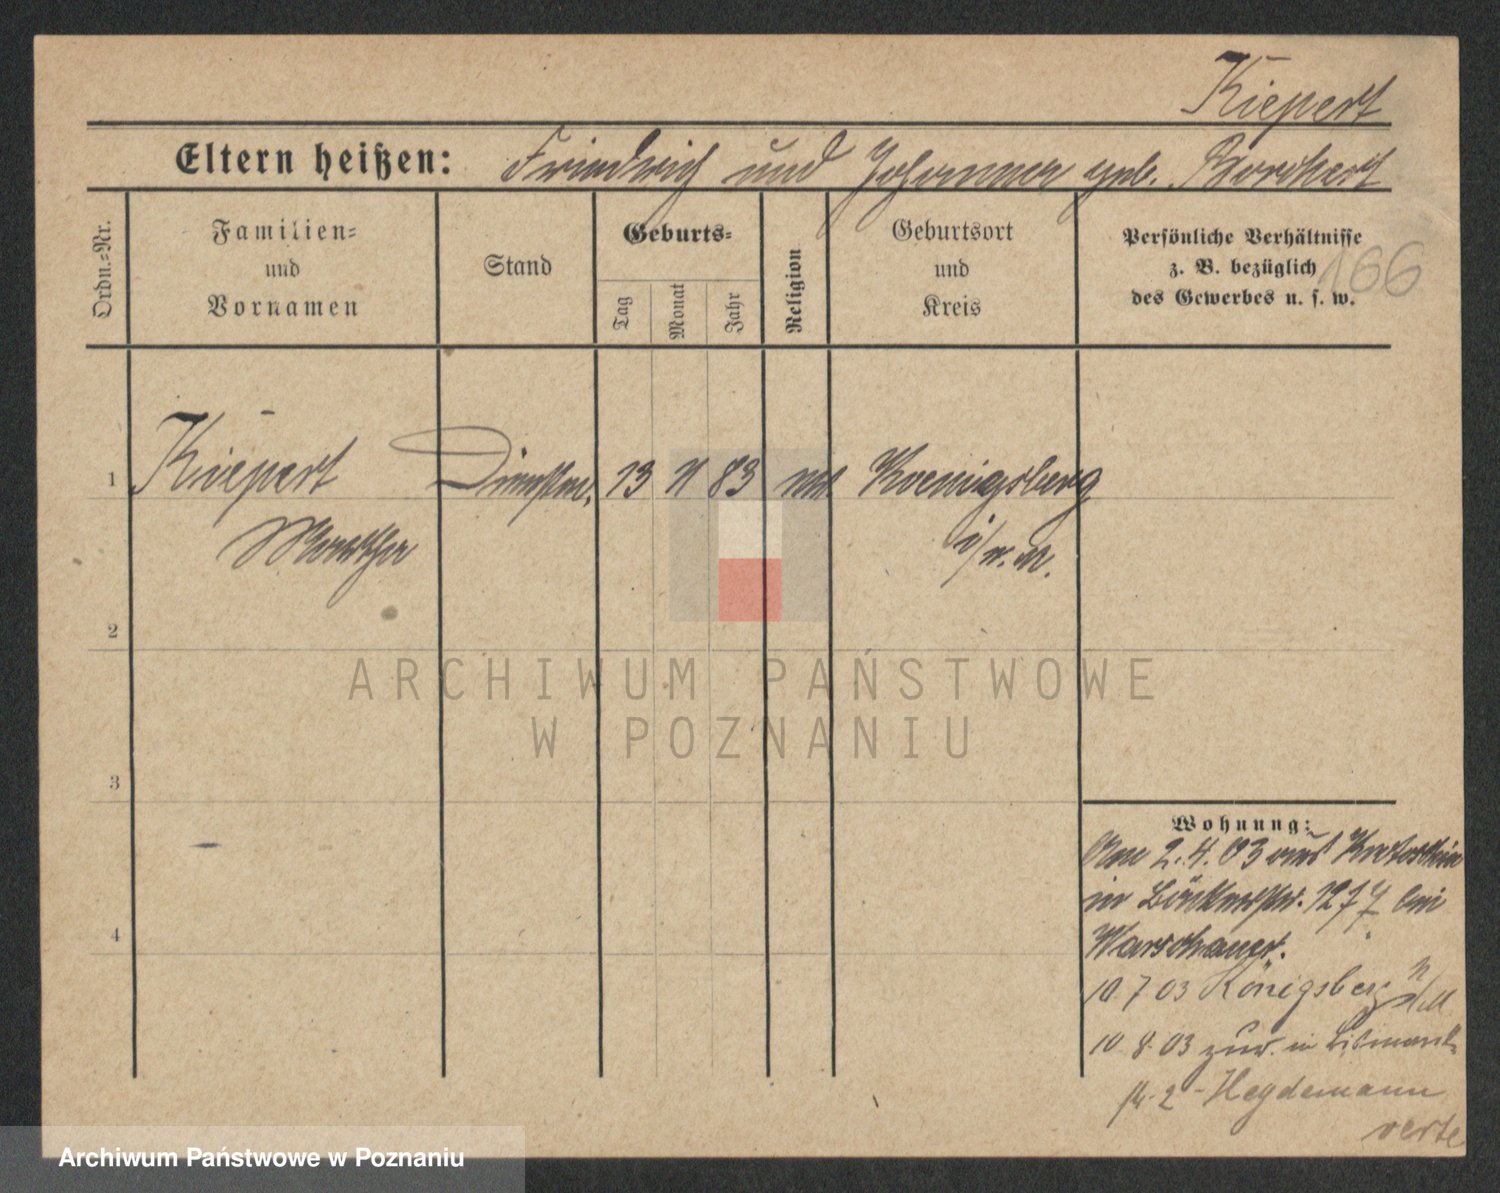 Kiepert
Eltern heißen: Friedrich und Johanna geb. Borchert
Ordn.-Nr.
Familien-
und
Vornamen
Stand
Geburts-
Tag
Monat
Jahr
Religion
Geburtsort
und
Kreis
Persönliche Verhältnisse
z. B. bezüglich
des Gewerbes u. s. w.
166
1 Kiepert Dienstm. 13 11 83 Koenigsberg
Martha i/n. M.
2
3
4
Wohnung:
Am 2. 4. 03 aus
in 12 bei
Warschauer.
10 7 03 Königsberg n/M
10 8 03 zur. in Bismarck-
str. 2 - Hegdemann
verte
ARCHIWUM PAŃSTWOWE
W POZNANIU
Archiwum Państwowe w Poznaniu